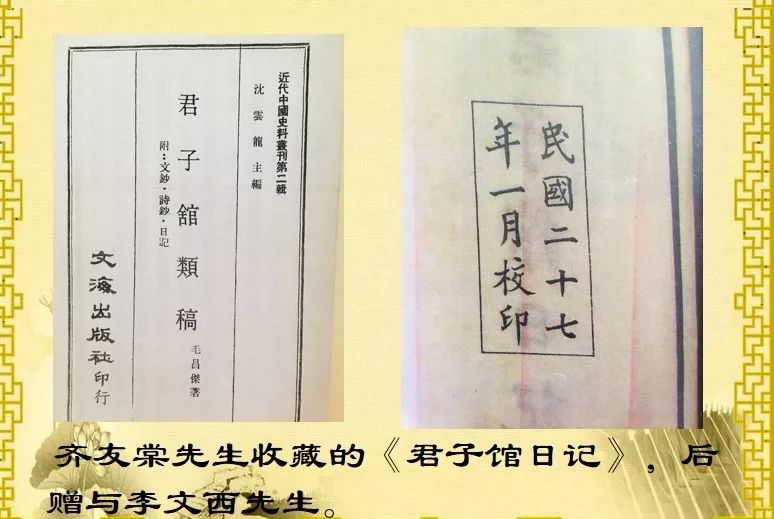 近代中國史料叢刊第二輯
沈雲龍主編
君子舘類稿
附：文鈔·詩鈔·日記
毛昌傑著
文海出版社印行
民國二十七
年一月校印
齐友棠先生收藏的《君子馆日记》，后
赠与李文西先生。